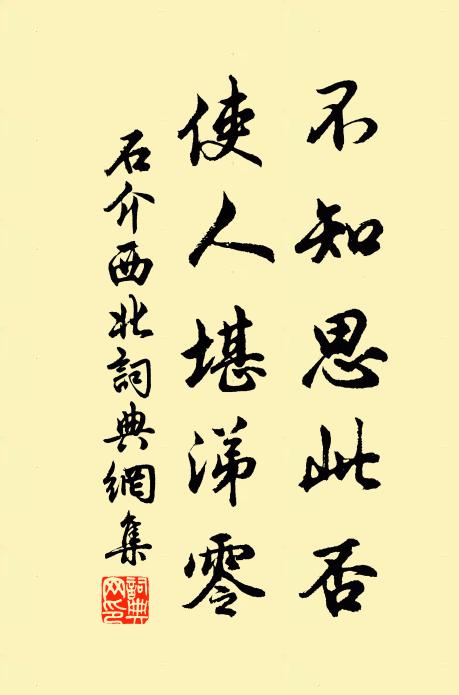 不知思此否
使人堪涕零
石介西北詞典網集
詞典網印